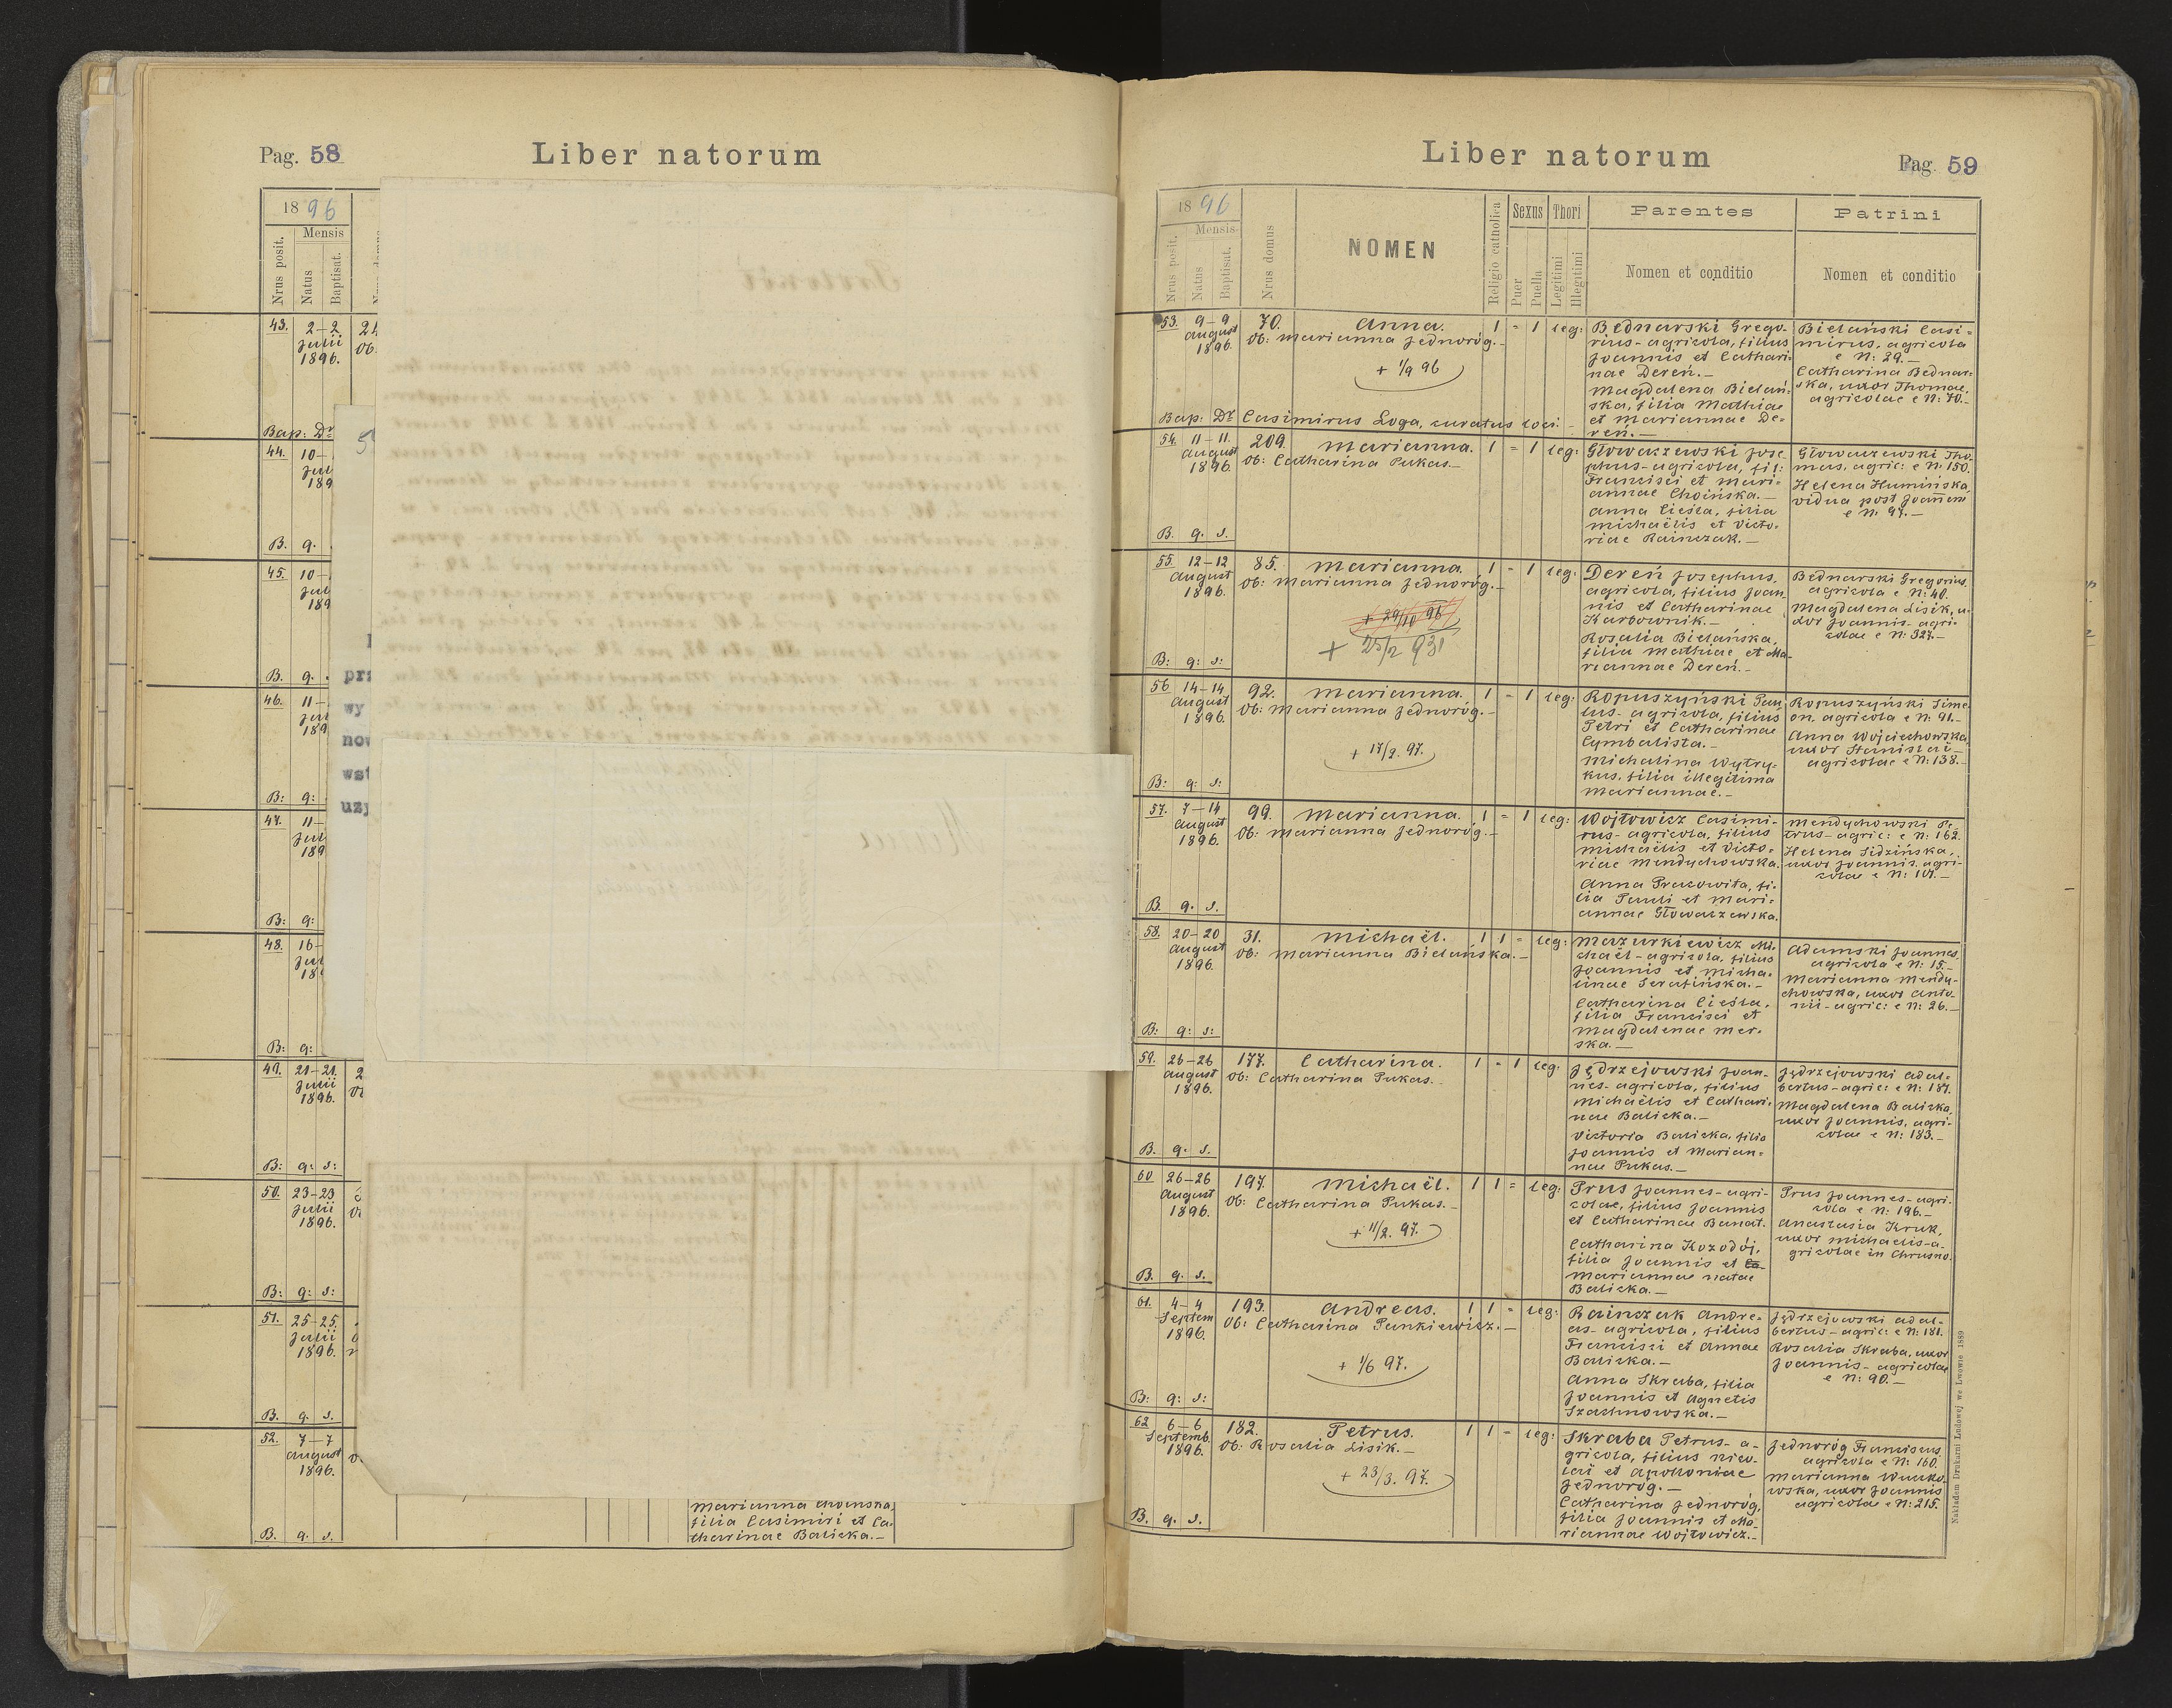 Pag. 58
Liber natorum
1896
Mensis
Nrus posit.
Natus
Baptisat.
43. 2–2 Julii 1896.
Bap: Dr
44. 10–
B. q.
45. 10–
B. q.
46. 11–
B: q:
47. 11–
B: q:
48. 16–
B: q:
49. 21–21. Julii 1896.
B: q: s:
50. 23–23 Julii 1896.
B: q: s:
51. 25–25. Julii 1896.
B. q. s.
52. 7–7 August 1896.
B. q. s.
prz
wy
now
wst
uzy
Marianna Choińska,
filia Casimiri et Ca-
tharinae Balicka.–
Liber natorum
Pag. 59
1896
Mensis
Nrus posit.
Natus
Baptisat.
Nrus domus
NOMEN
Religio catholica
Sexus
Puer
Puella
Thori
Legitimi
Illegitimi
Parentes
Nomen et conditio
Patrini
Nomen et conditio
53. 9–9 August 1896.
70. Anna. 1 = 1 leg:
Ob: Marianna Jednoróg.–
+ 1/9 96
Bednarski Grego-
rius–agricola, filius
Joannis et Cathari-
nae Dereń.–
Magdalena Bielań-
ska, filia Mathiae
et Mariannae De-
reń.–
Bielański Casi-
mirus, agricola
e N: 29.–
Catharina Bednar-
ska, uxor Thomae,
agricolae e N: 70.–
Bap: Dr Casimirus Loga, curatus loci.–
54. 11–11. August 1896.
209. Marianna. 1 = 1 leg:
Ob: Catharina Pukas.–
Głowaczewski Jose-
phus–agricola, fil:
Francisci et Mari-
annae Choińska.–
Anna Cieśla, filia
Michaëlis et Victo-
riae Rainczak.–
Głowaczewski Tho-
mas, agric: e N: 150.
Helena Humińska,
vidua post Joannem
e N: 97.–
B. q. s.
55. 12–12 August 1896.
85. Marianna. 1 = 1 leg:
Ob: Marianna Jednoróg.–
+ 29/10 96
+ 25/2 931
Dereń Josephus,
agricola, filius Joan-
nis et Catharinae
Karbownik.–
Rosalia Bielańska,
filia Mathiae et Ma-
riannae Dereń.–
Bednarski Gregorius,
agricola e N: 40.
Magdalena Lisik, u-
xor Joannis–agri-
colae e N: 327.–
B: q: s:
56 14–14 August 1896.
92. Marianna. 1 – 1 leg:
Ob: Marianna Jednoróg.–
+ 17/2. 97.
Ropuszyński Pau-
lus–agricola, filius
Petri et Catharinae
Cymbalista.–
Michalina Wytry-
kus, filia illegitima
Mariannae.–
Ropuszyński Sime-
on, agricola e N: 91.–
Anna Wojciechowska,
uxor Stanislai–
agricolae e N: 138.–
B: q: s:
57. 7–14 August 1896.
99. Marianna. 1 = 1 leg:
Ob: Marianna Jednoróg.–
Wojtowicz Casimi-
rus–agricola, filius
Michaëlis et Victo-
riae Mendychowska.
Anna Pracowita, fi-
lia Pauli et Mari-
annae Głowaczewska.
Mendychowski Pe-
trus–agric: e N: 162.
Helena Sidzińska,
uxor Joannis, agri-
colae e N: 107.–
B. q. s.
58. 20–20 August 1896.
31. Michaël. 1 1 = leg:
Ob: Marianna Bielańska.–
Mazurkiewicz Mi-
chaël–agricola, filius
Joannis et Micha-
linae Serafińska.–
Catharina Cieśla,
filia Francisci et
Magdalenae Mer-
ska.–
Adamski Joannes,
agricola e N: 15.–
Marianna Mendy-
chowska, uxor Anto-
nii–agric: e N: 26.–
B: q: s:
59. 26–26 August 1896.
177. Catharina. 1 = 1 leg:
Ob: Catharina Pukas.–
Jędrzejowski Joan-
nes–agricola, filius
Michaëlis et Cathari-
nae Balicka.–
Victoria Balicka, filia
Joannis et Marian-
nae Pukas.–
Jędrzejowski Adal-
bertus–agric: e N: 187.
Magdalena Balicka,
uxor Joannis, agri-
colae e N: 183.–
B. q. s.
60 26–26 August 1896.
197. Michaël. 1 1 = leg:
Ob: Catharina Pukas.–
+ 11/2. 97.
Prus Joannes–agri-
colae, filius Joannis
et Catharinae Banat.
Catharina Kozodój,
filia Joannis et Ca-
Mariannae natae
Balicka.–
Prus Joannes–agri-
cola e N: 196.–
Anastasia Kruk,
uxor Michaelis–a-
gricolae in Chrusno.
B. q. s.
61. 4–4 Septem 1896.
193. Andreas. 1 1 = leg:
Ob: Catharina Pankiewicz.–
+ 1/6 97.
Rainczak Andre-
as–agricola, filius
Francisci et Annae
Balicka.–
Anna Skraba, filia
Joannis et Agnetis
Szachnowska.–
Jędrzejowski Adal-
bertus–agric: e N: 181.
Rosalia Skraba, uxor
Joannis–agricolae
e N: 90.–
B: q: s:
62 6–6 Septemb. 1896.
182. Petrus. 1 1 – leg:
Ob: Rosalia Lisik.–
+ 23/3. 97.
Skraba Petrus–a-
gricola, filius Nico-
lai et Apolloniae
Jednoróg.–
Catharina Jednoróg,
filia Joannis et Ma-
riannae Wojtowicz.–
Jednoróg Franciscus
agricola e N: 160.
Marianna
uxor Joannis
agricolae e N: 215.
B. q. s.
Nakładem Drukarni Ludowej we Lwowie 1889